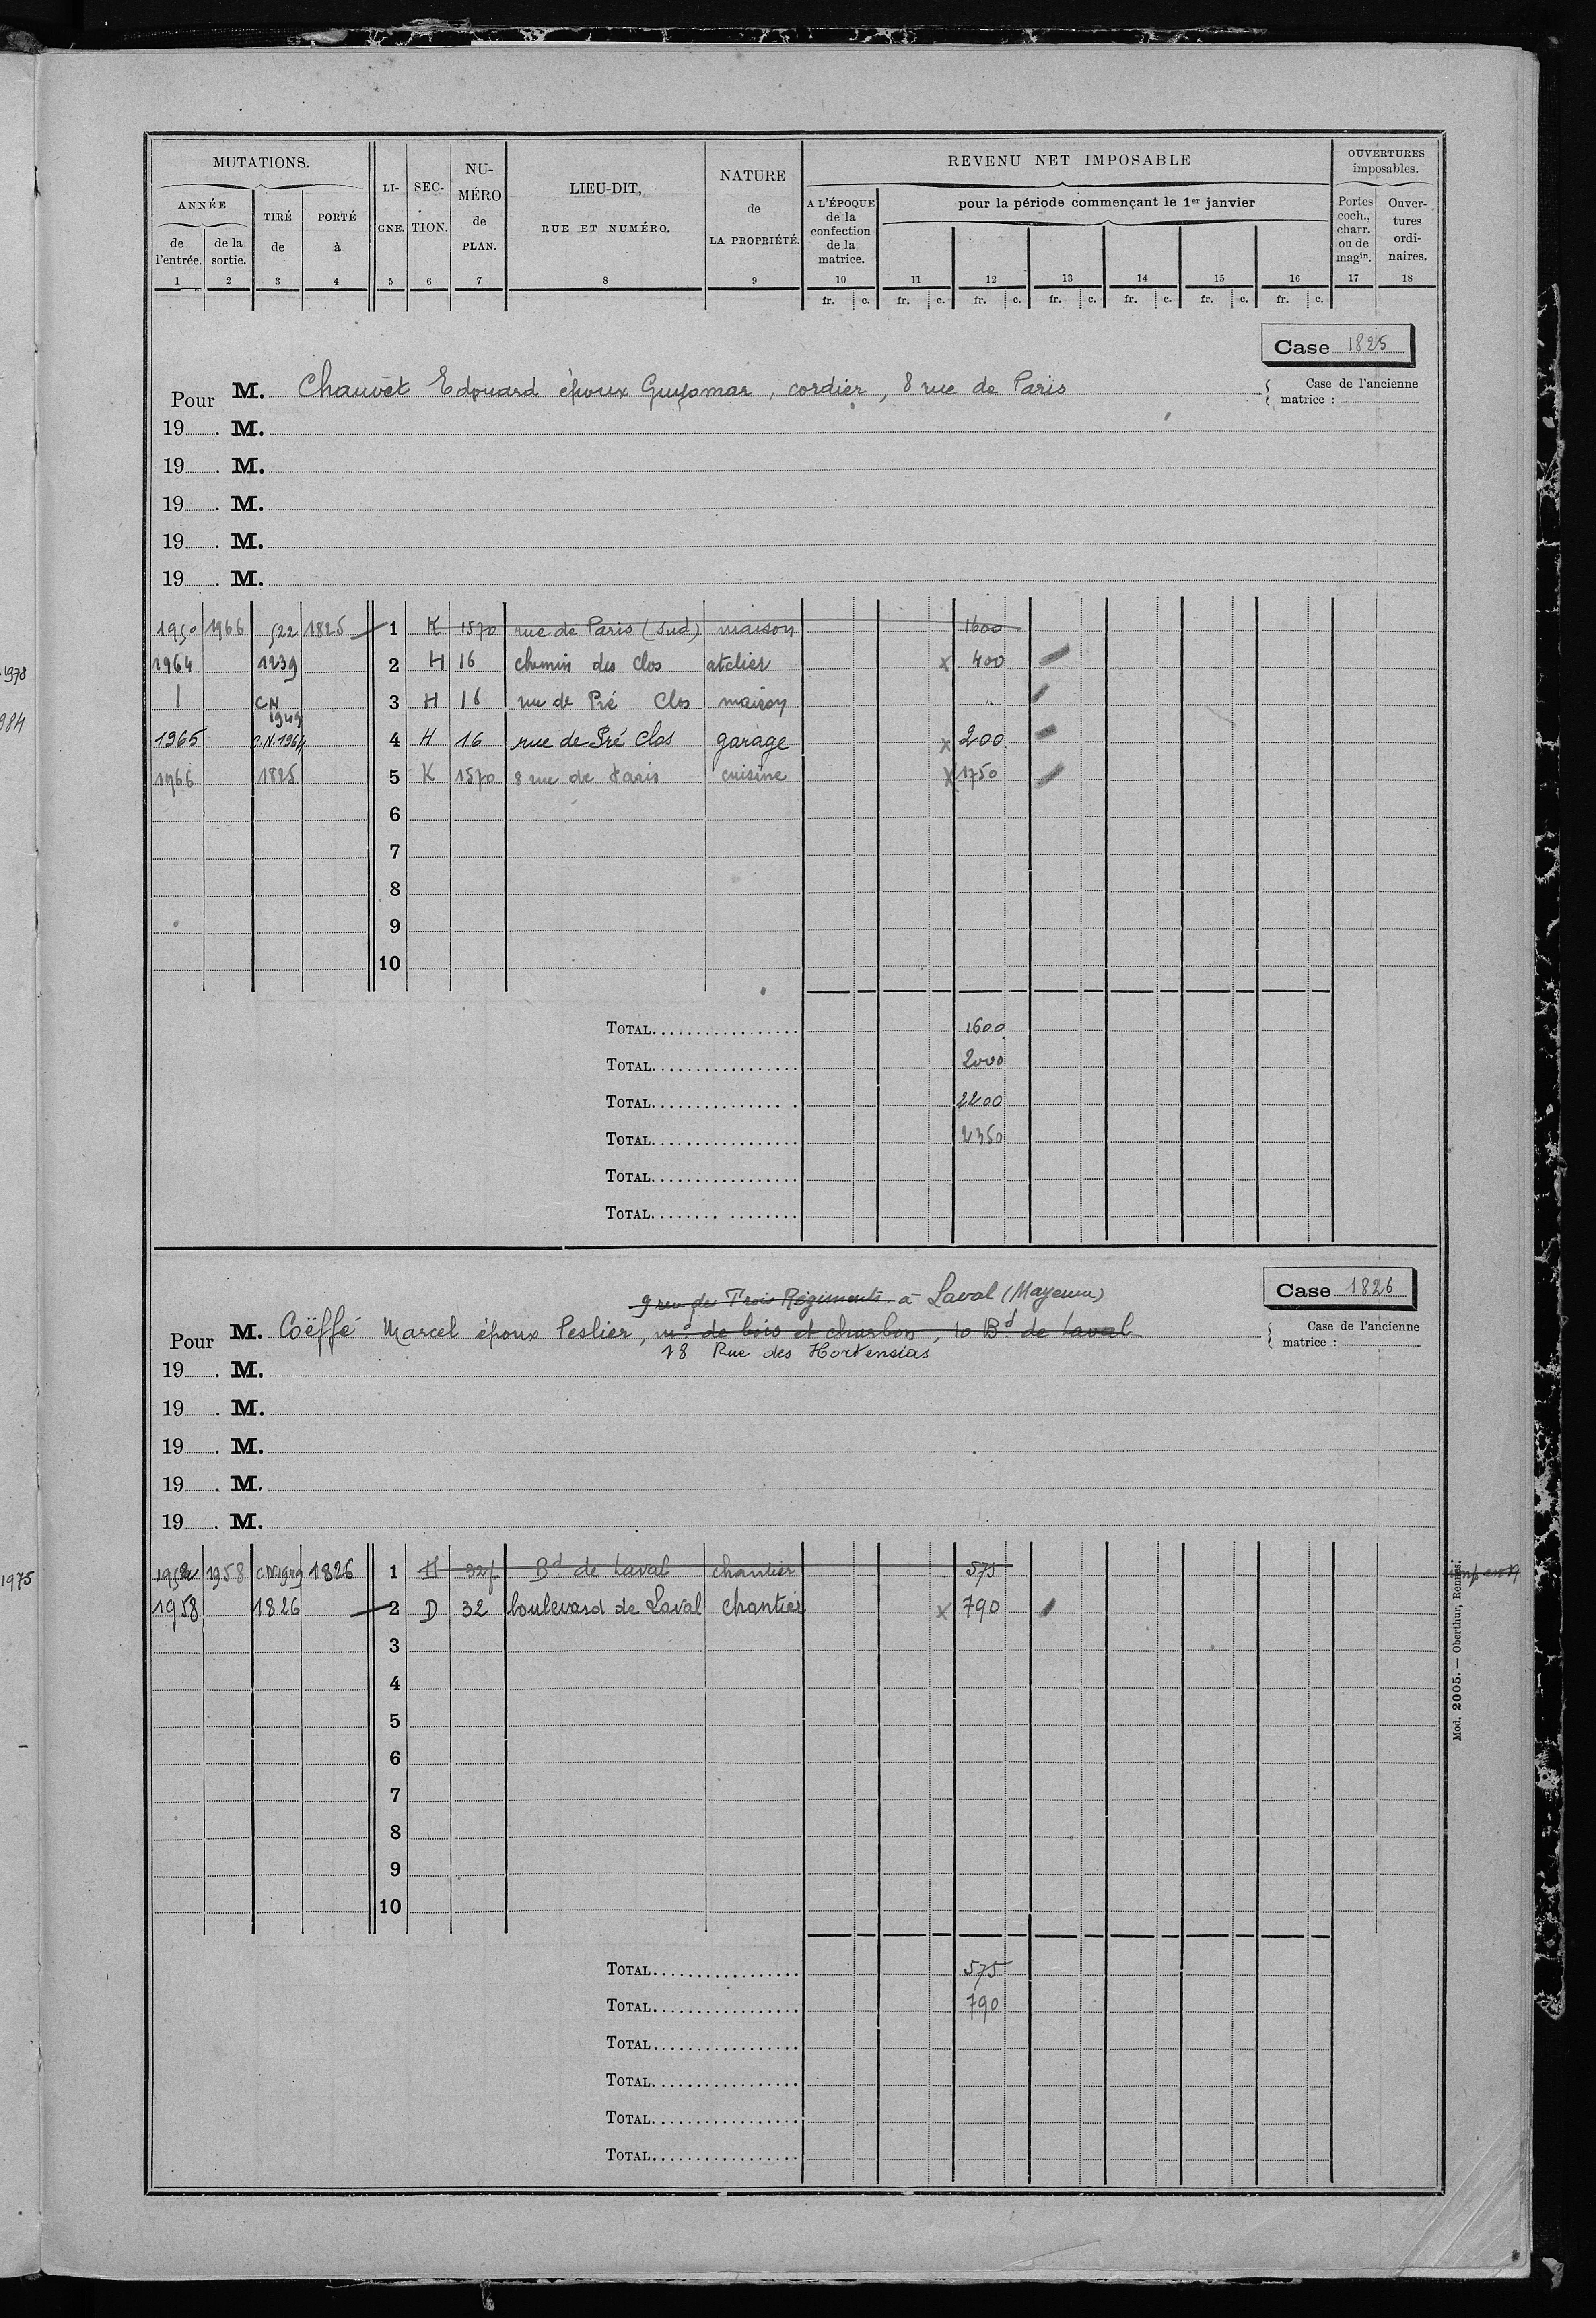 MUTATIONS.
ANNÉE
de l'entrée.
1
de la sortie.
2
TIRÉ de
3
PORTÉ à
4
LI-GNE.
5
SEC-TION.
6
NU-MÉRO de PLAN.
7
LIEU-DIT, RUE ET NUMÉRO.
8
NATURE de LA PROPRIÉTÉ.
9
REVENU NET IMPOSABLE
A L'ÉPOQUE de la confection de la matrice.
pour la période commençant le 1er janvier
10 11 12 13 14 15 16
fr. c. fr. c. fr. c. fr. c. fr. c. fr. c. fr. c.
OUVERTURES imposables.
Portes coch., charr. ou de magin.
17
Ouver-tures ordi-naires.
18
Case 1825
Pour M. Chauvet Edouard époux Guyomar, cordier, 8 rue de Paris
Case de l'ancienne matrice :
19 . M.
19 . M.
19 . M.
19 . M.
19 . M.
1950 1966 522 1825 1 K 1570 rue de Paris (Sud) maison 1600
1964 1239 2 H 16 chemin des clos atelier x 400
CN 1949 3 H 16 rue de Pré Clos maison
1965 C.N.1964 4 H 16 rue de Pré Clos garage x 200
1966 1825 5 K 1570 8 rue de Paris cuisine x 1750
6
7
8
9
10
TOTAL 1600
TOTAL 2000
TOTAL 2200
TOTAL 2350
TOTAL
TOTAL
Case 1826
9 rue des Trois Régiments à Laval (Mayenne)
Pour M. Coëffé Marcel époux Peslier, md de bois et charbon, 10 Bd de Laval
18 Rue des Hortensias
Case de l'ancienne matrice :
19 . M.
19 . M.
19 . M.
19 . M.
19 . M.
1958 1826 1 H Bd de Laval chantier 575
1958 1826 2 D 32 boulevard de Laval chantier x 790
3
4
5
6
7
8
9
10
TOTAL 575
TOTAL 790
TOTAL
TOTAL
TOTAL
TOTAL
Mod. 2005. — Oberthur, Rennes.
1978
984
1975